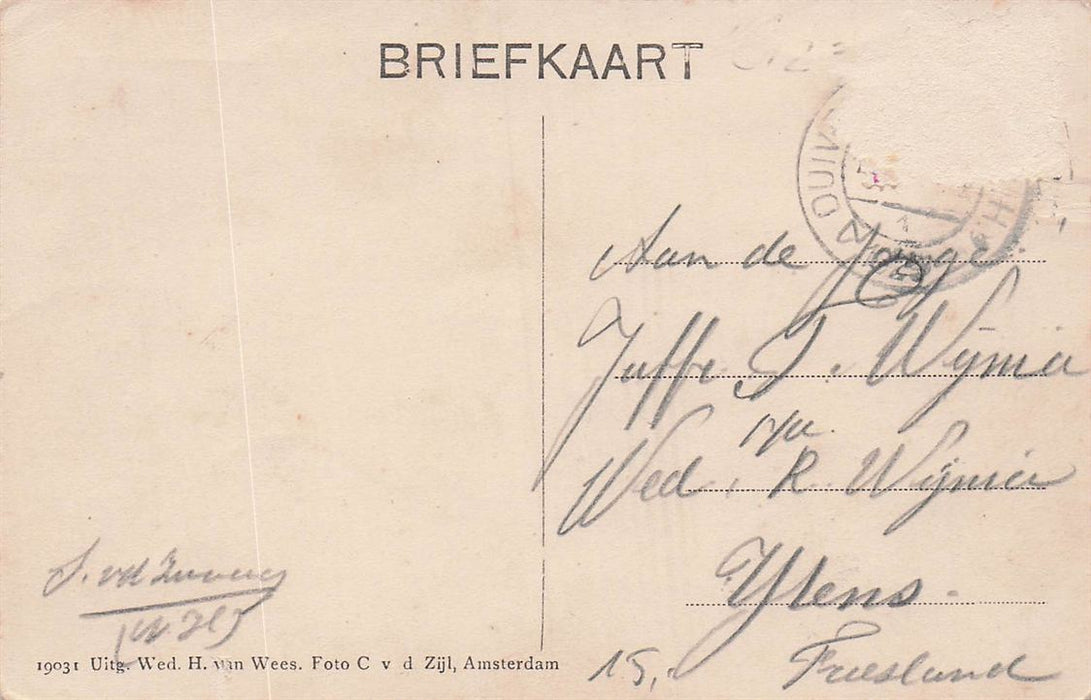 BRIEFKAART
OUIV
Aan de Jonge
Juffr. T. Wijnia
p/a.
Wed. R. Wijnia
Ylens.
Friesland
15,-
S. vd
19031 Uitg. Wed. H. van Wees. Foto C v d Zijl, Amsterdam